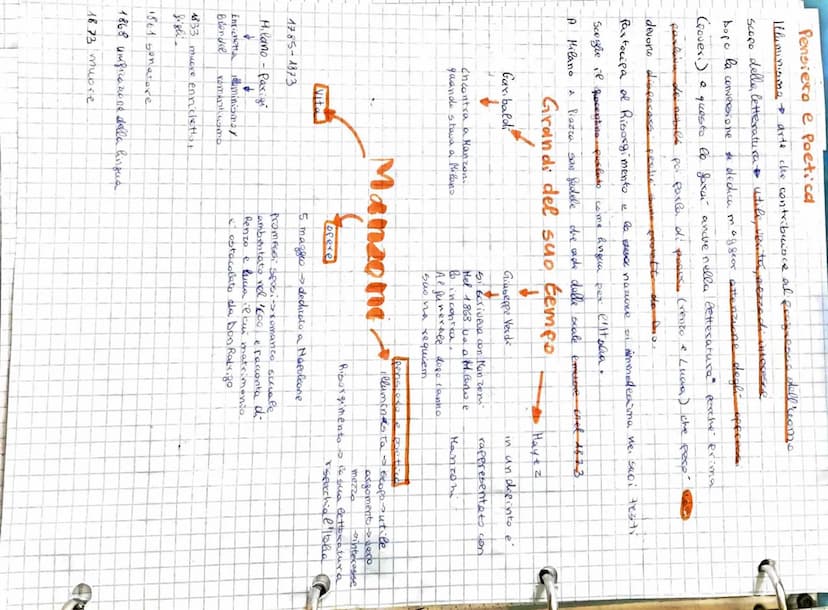 Pensiero e poetica
Illuminismo → arte che contribuisce al progresso dell'uomo
scopo della letteratura → utile, verità, mezzo di interesse
Dopo la conversione si dedica maggior attenzione degli oppressi
(poveri) e questo lo farai anche nella letteratura" perché prima
poi parla di (renzo e Lucia) che però
devono
Partecipa al Risorgimento e la sua natura si immedesima nei suoi testi
sceglie il fiorentino parlato come lingua per l'Italia.
A Milano a Piazza san fedele che cade dalle scale e muore nel 1873
Grandi del suo tempo
Garibaldi
incontra a Manzoni
quando stava a Milano
Giuseppe Verdi
si scriveva con Manzoni
Nel 1868 va a Milano e
lo incontra.
Al funerale dopo l'anno
suona requiem
Hayez
in un dipinto è
rappresentato con
Manzoni
Manzoni
vita
1785-1873
Milano - Parigi
Enrichetta illuminismo/
Blondel romanticismo
1833 muore enrichetta,
figli.
1861 senatore
1868 unificazione della lingua
1873 muore
opere
5 maggio → dedicato a Napoleone
Promessi sposi → romanzo
ambientato nel '600, e racconta di
Renzo e Lucia il cui matrimonio
è ostacolato da Don Rodrigo
pensiero e poetica
illuminista → scopo → utile
argomento → vero
mezzo → interesse
Risorgimento → la sua letteratura
rispecchia l'Italia